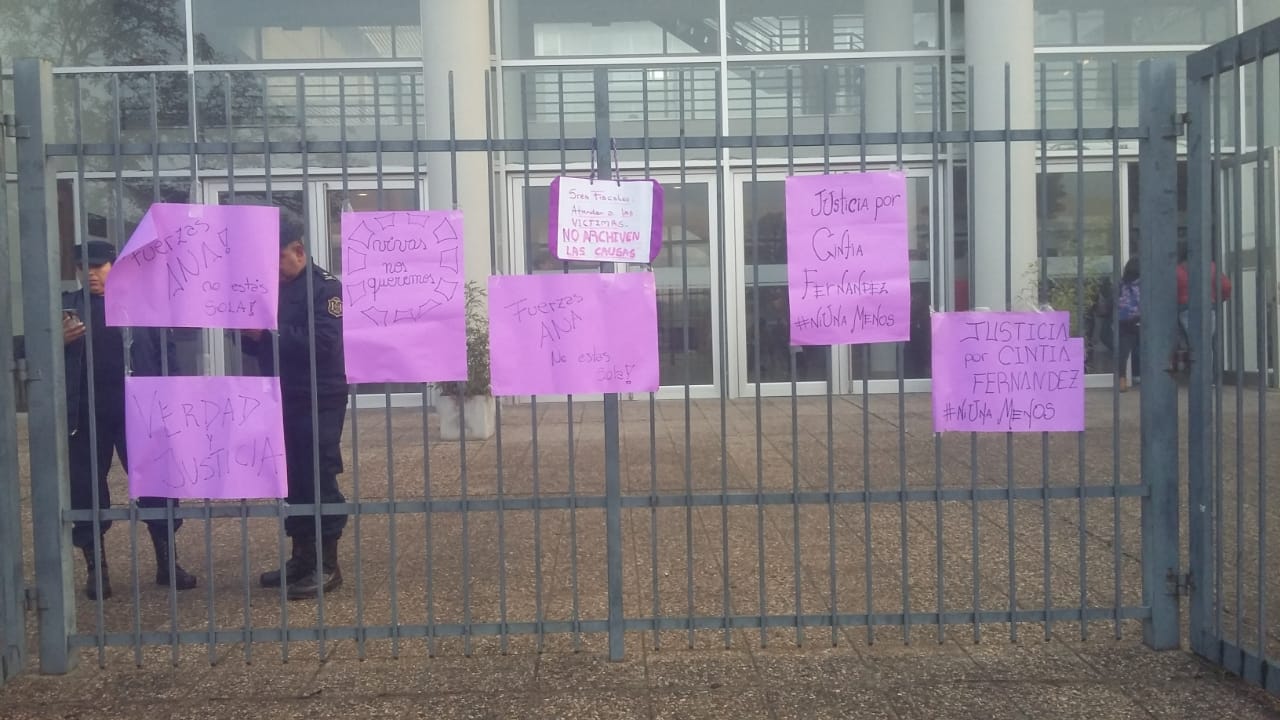 Fuerzas
ANA!
no estás
SOLA!
VERDAD
y
JUSTICIA
vivas
nos
queremos
Fuerzas
ANA
No estás
sola!
Sres Fiscales.
Atiendan a las
VÍCTIMAS.
NO ARCHIVEN
LAS CAUSAS
Justicia por
Cintia
Fernandez
#NiUna Menos
JUSTICIA
por CINTIA
FERNANDEZ
#NiUna MENOS